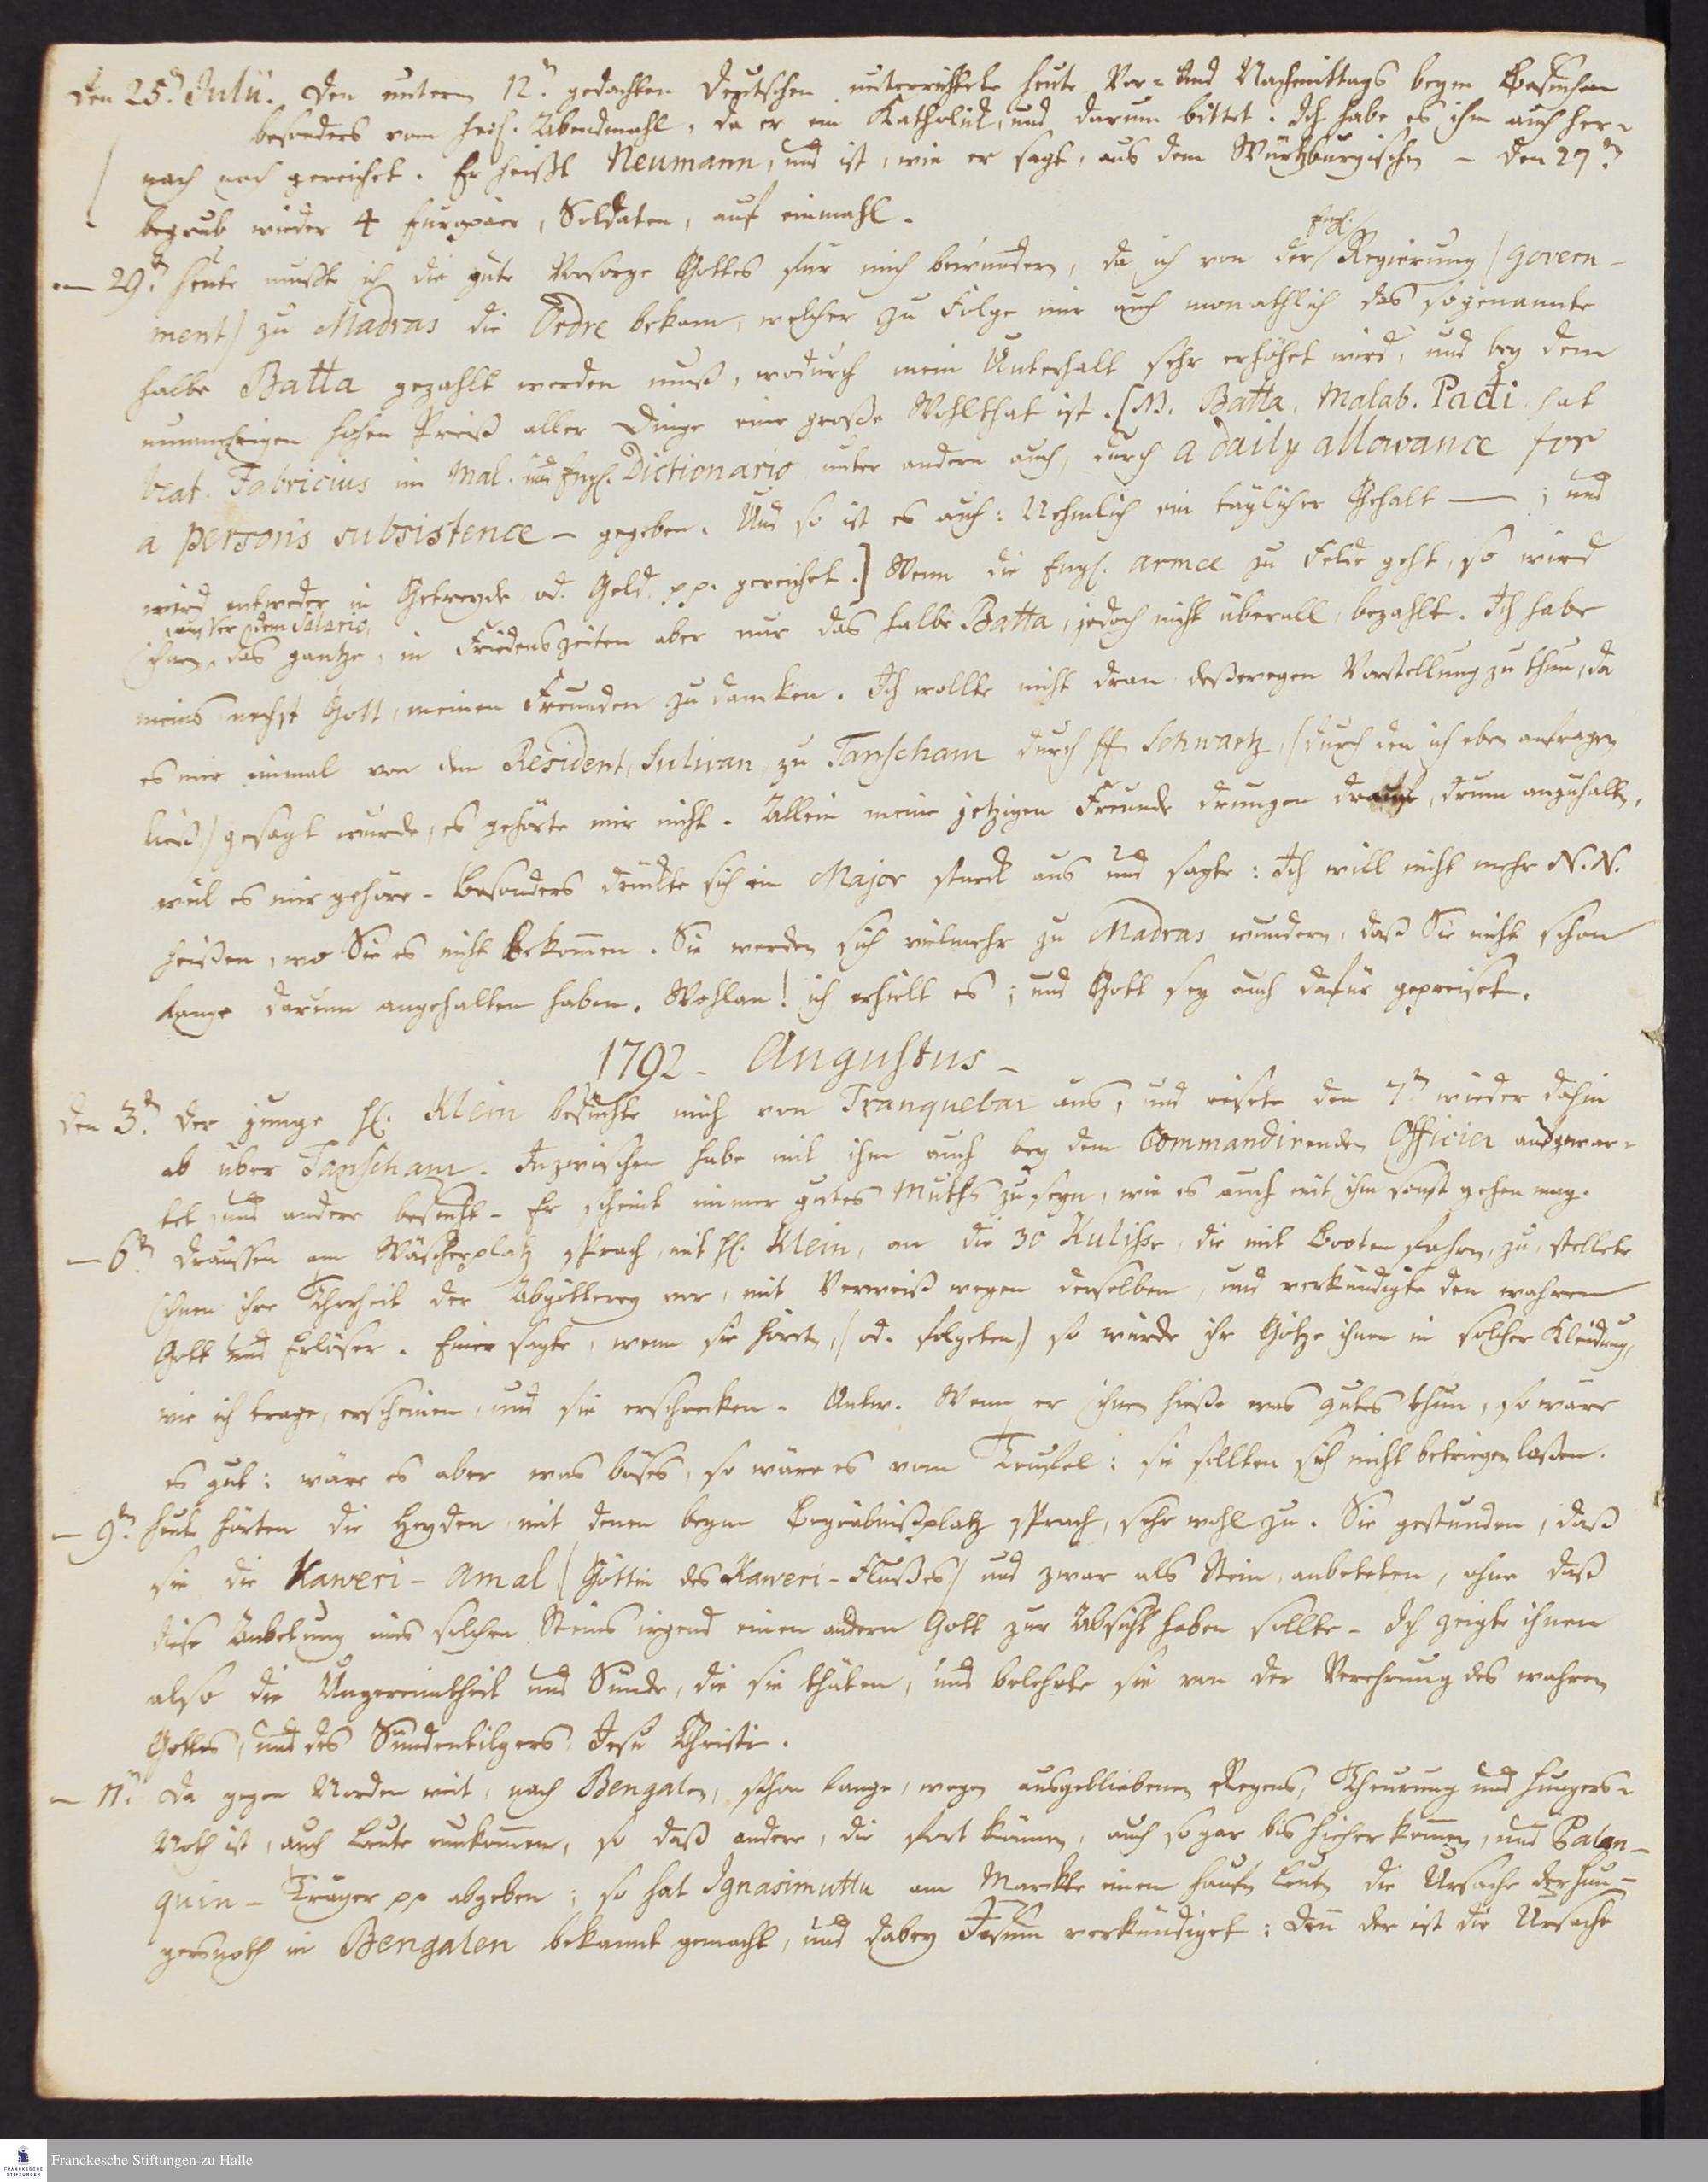 Den 25.n Julii. Den unterm 12.n gedachten Deutschen unterrichtete heute Vor- und Nachmittags beym Besuchen
besonders vom heil. Abendmahl, da er ein Katholick, und darum bittet. Ich habe es ihm auch her-
nach noch gereichet. Er heisst Neumann, und ist, wie er sagt, aus dem Würtzburgischen - Den 27.n
begrub wieder 4 Europäer, Soldaten, auf einmahl.
— 29.n Heute musste ich die gute Vorsorge Gottes für mich bewundern, da ich von der Engl. Regierung (Govern-
ment) zu Madras die Ordre bekam, welcher zu Folge mir auch monathlich das sogenannte
halbe Batta gezahlt werden muß, wodurch mein Unterhalt sehr erhöhet wird, und bey dem
nunmehrigen hohen Preiß aller Dinge eine große Wohlthat ist. [NB. Batta, Malab. Padi hat
beat. Fabricius im Mal. und Engl. Dictionario unter andern auch, durch a daily allowance for
a person's subsistence - gegeben. Und so ist es auch: Nehmlich ein täglicher Gehalt — ; und
wird entweder in Getreyde od. Geld pp. gereichet.] Wenn die Engl. Armee zu Felde geht, so wird
ausser dem Salario,
ihnen das gantze, in Friedenszeiten aber nur das halbe Batta, jedoch nicht überall, bezahlt. Ich habe
meins nechst Gott, meinen Freunden zu dancken. Ich wollte nicht dran deßwegen Vorstellung zu thun, da
es mir einmal von dem Resident, Sulivan, zu Tanschaur durch H. Schwartz, (durch den ich eben anfragen
ließ,) gesagt wurde, es gehörte mir nicht. Allein meine jetzigen Freunde drungen drauf, drum anzuhalten,
weil es mir gehöre - Besonders drückte sich ein Major starck aus und sagte: Ich will nicht mehr N. N.
heißen, wo Sie es nicht bekommen. Sie werden sich vielmehr zu Madras wundern, daß Sie nicht schon
lange darum angehalten haben. Wohlan! ich erhielt es; und Gott sey auch dafür gepreiset.
1792 - Augustus -
Den 3.n Der junge H. Klein besuchte mich von Tranquebar aus, und reisete den 7.n wieder dahin
ab über Tanschaur. Inzwischen habe mit ihm auch bey dem Commandirenden Officier aufgewar-
tet und andere besucht - Er scheint immer gutes Muths zu seyn, wie es auch mit ihm sonst gehen mag.
— 6.n Draussen am Wäscherplatz sprach, mit H. Klein, an die 30 Kulisse, die mit Booten fahren, zu, stellete
ihnen ihre Thorheit der Abgötterey vor, mit Verweiß wegen derselben, und verkündigte den wahren
Gott und Erlöser. Einer sagte, wenn sie hörten, (od. folgeten,) so würde ihr Götze ihnen in solcher Kleidung,
wie ich trage, erscheinen, und sie erschrecken. Antw. Wenn er ihnen hieße was gutes thun, so wäre
es gut: wäre es aber was böses, so wäre es vom Teufel: sie sollten sich nicht betriegen laßen.
— 9.n Heute hörten die Heyden, mit denen beym Begräbnißplatz sprach, sehr wohl zu. Sie gestunden, daß
sie die Kaweri-Amal (Göttin des Kaweri-Flußes) und zwar als Stein, anbeteten, ohne daß
diese Anbetung eines solchen Steins irgend einen andern Gott zur Absicht haben sollte - Ich zeigte ihnen
also die Ungereimtheit und Sünde, die sie thäten, und belehrte sie von der Verehrung des wahren
Gottes, und des Sündentilgers, Jesu Christi.
— 11.n Da gegen Norden weit, nach Bengalen, schon lange, wegen ausgebliebenen Regens, Theurung und Hungers-
Noth ist, auch Leute umkommen, so daß andere, die fort können, auch sogar bis hieher kommen, und Palan-
quin-Träger pp abgeben; so hat Ignasimuttu am Marckte einem Haufen Leuten die Ursache der Hun-
gersnoth in Bengalen bekannt gemacht, und dabey Jesum verkündiget: Denn der ist die Ursache
Franckesche Stiftungen zu Halle